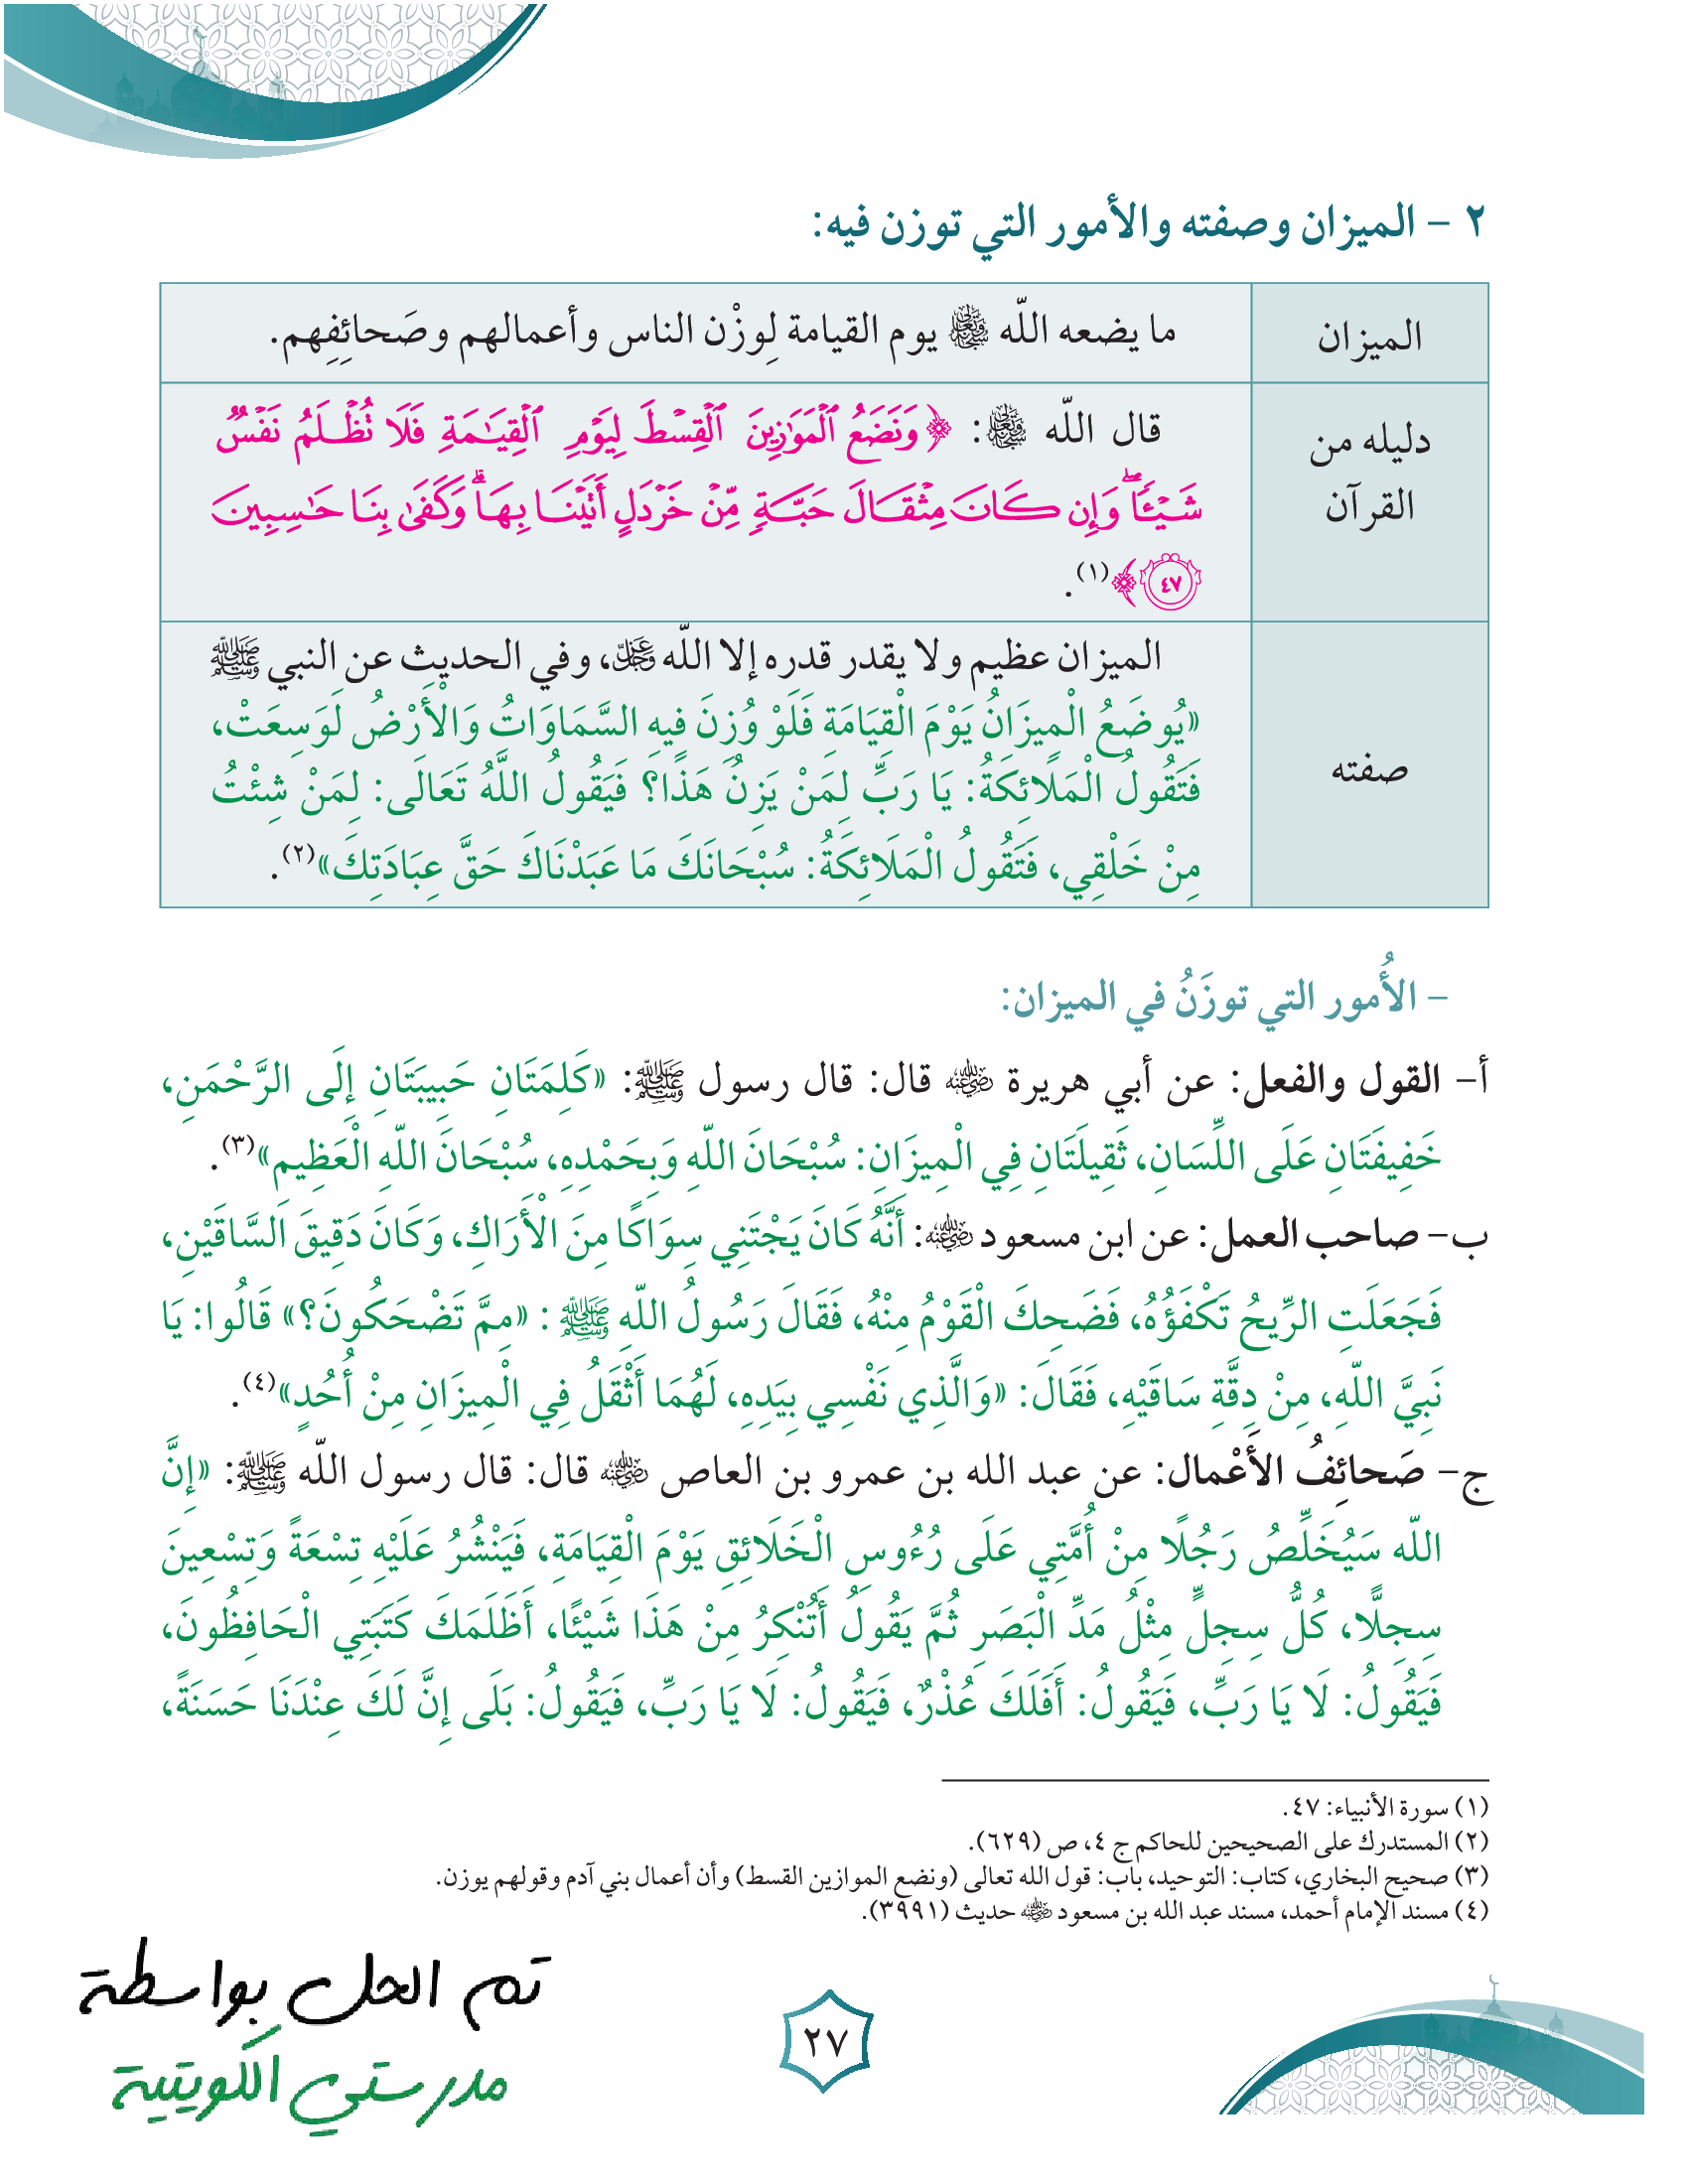 ٢ – الميزان وصفته والأمور التي توزن فيه:
الميزان
ما يضعه اللّه ﷾ يوم القيامة لِوزْن الناس وأعمالهم وصَحائِفِهم.
دليله من
القرآن
قال اللّه ﷾: ﴿وَنَضَعُ ٱلْمَوَٰزِينَ ٱلْقِسْطَ لِيَوْمِ ٱلْقِيَـٰمَةِ فَلَا تُظْلَمُ نَفْسٌ
شَيْـًٔا ۖ وَإِن كَانَ مِثْقَالَ حَبَّةٍ مِّنْ خَرْدَلٍ أَتَيْنَا بِهَا ۗ وَكَفَىٰ بِنَا حَـٰسِبِينَ
٤٧﴾(١).
صفته
الميزان عظيم ولا يقدر قدره إلا اللّه عز وجل، وفي الحديث عن النبي ﷺ
«يُوضَعُ الْمِيزَانُ يَوْمَ الْقِيَامَةِ فَلَوْ وُزِنَ فِيهِ السَّمَاوَاتُ وَالْأَرْضُ لَوَسِعَتْ،
فَتَقُولُ الْمَلَائِكَةُ: يَا رَبِّ لِمَنْ يَزِنُ هَذَا؟ فَيَقُولُ اللَّهُ تَعَالَى: لِمَنْ شِئْتُ
مِنْ خَلْقِي، فَتَقُولُ الْمَلَائِكَةُ: سُبْحَانَكَ مَا عَبَدْنَاكَ حَقَّ عِبَادَتِكَ»(٢).
– الأُمور التي توزَنُ في الميزان:
أ– القول والفعل: عن أبي هريرة رضي الله عنه قال: قال رسول ﷺ: «كَلِمَتَانِ حَبِيبَتَانِ إِلَى الرَّحْمَنِ،
خَفِيفَتَانِ عَلَى اللِّسَانِ، ثَقِيلَتَانِ فِي الْمِيزَانِ: سُبْحَانَ اللّهِ وَبِحَمْدِهِ، سُبْحَانَ اللّهِ الْعَظِيمِ»(٣).
ب– صاحب العمل: عن ابن مسعود رضي الله عنه: أَنَّهُ كَانَ يَجْتَنِي سِوَاكًا مِنَ الْأَرَاكِ، وَكَانَ دَقِيقَ السَّاقَيْنِ،
فَجَعَلَتِ الرِّيحُ تَكْفَؤُهُ، فَضَحِكَ الْقَوْمُ مِنْهُ، فَقَالَ رَسُولُ اللّهِ ﷺ : «مِمَّ تَضْحَكُونَ؟» قَالُوا: يَا
نَبِيَّ اللّهِ، مِنْ دِقَّةِ سَاقَيْهِ، فَقَالَ: «وَالَّذِي نَفْسِي بِيَدِهِ، لَهُمَا أَثْقَلُ فِي الْمِيزَانِ مِنْ أُحُدٍ»(٤).
ج– صَحائِفُ الأَعْمال: عن عبد الله بن عمرو بن العاص رضي الله عنه قال: قال رسول اللّه ﷺ: «إِنَّ
اللّه سَيُخَلِّصُ رَجُلًا مِنْ أُمَّتِي عَلَى رُءُوسِ الْخَلَائِقِ يَوْمَ الْقِيَامَةِ، فَيَنْشُرُ عَلَيْهِ تِسْعَةً وَتِسْعِينَ
سِجِلًّا، كُلُّ سِجِلٍّ مِثْلُ مَدِّ الْبَصَرِ ثُمَّ يَقُولُ أَتُنْكِرُ مِنْ هَذَا شَيْئًا، أَظَلَمَكَ كَتَبَتِي الْحَافِظُونَ،
فَيَقُولُ: لَا يَا رَبِّ، فَيَقُولُ: أَفَلَكَ عُذْرٌ، فَيَقُولُ: لَا يَا رَبِّ، فَيَقُولُ: بَلَى إِنَّ لَكَ عِنْدَنَا حَسَنَةً،
(١) سورة الأنبياء: ٤٧.
(٢) المستدرك على الصحيحين للحاكم ج ٤، ص (٦٢٩).
(٣) صحيح البخاري، كتاب: التوحيد، باب: قول الله تعالى (ونضع الموازين القسط) وأن أعمال بني آدم وقولهم يوزن.
(٤) مسند الإمام أحمد، مسند عبد الله بن مسعود رضي الله عنه حديث (٣٩٩١).
تم الحل بواسطة
مدرستي الكويتية
٢٧